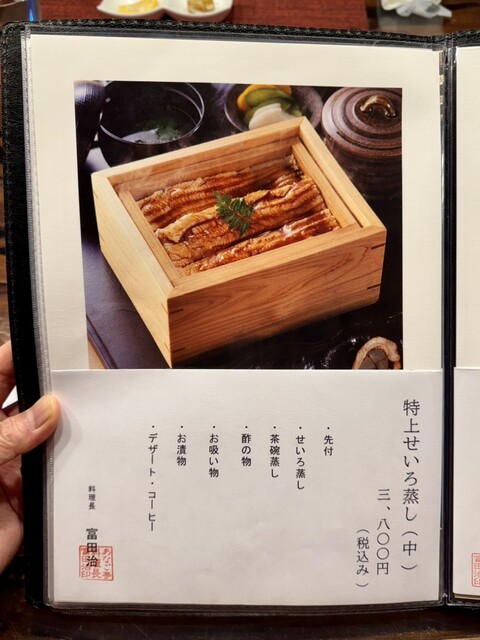 特上せいろ蒸し（中）
三、八〇〇円
（税込み）
・先付
・せいろ蒸し
・茶碗蒸し
・酢の物
・お吸い物
・お漬物
・デザート・コーヒー
料理長 富田 治